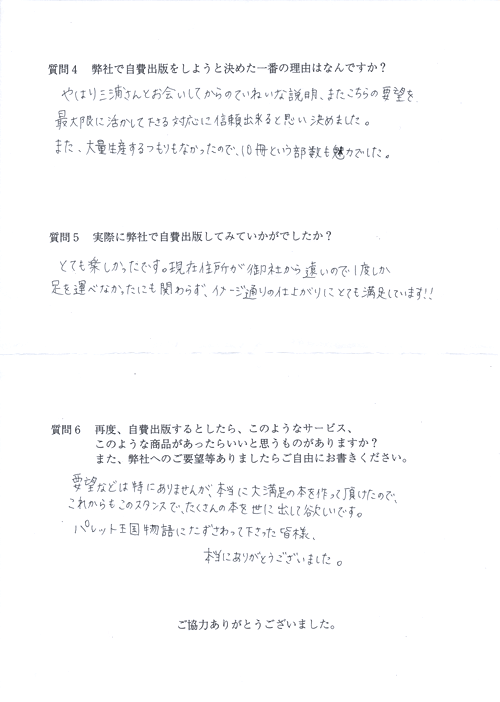 質問4 弊社で自費出版をしようと決めた一番の理由はなんですか？
やはり三浦さんとお会いしてからのていねいな説明、またこちらの要望を
最大限に活かして下さる対応に信頼出来ると思い決めました。
また、大量生産するつもりもなかったので、10冊という部数も魅力でした。
質問5 実際に弊社で自費出版してみていかがでしたか？
とても楽しかったです。現在住所が御社から遠いので1度しか
足を運べなかったにも関わらず、イメージ通りの仕上がりにとても満足しています!!
質問6 再度、自費出版するとしたら、このようなサービス、
このような商品があったらいいと思うものがありますか？
また、弊社へのご要望等ありましたらご自由にお書きください。
要望などは特にありませんが、本当に大満足の本を作って頂けたので、
これからもこのスタンスで、たくさんの本を世に出して欲しいです。
パレット王国物語にたずさわって下さった皆様、
本当にありがとうございました。
ご協力ありがとうございました。